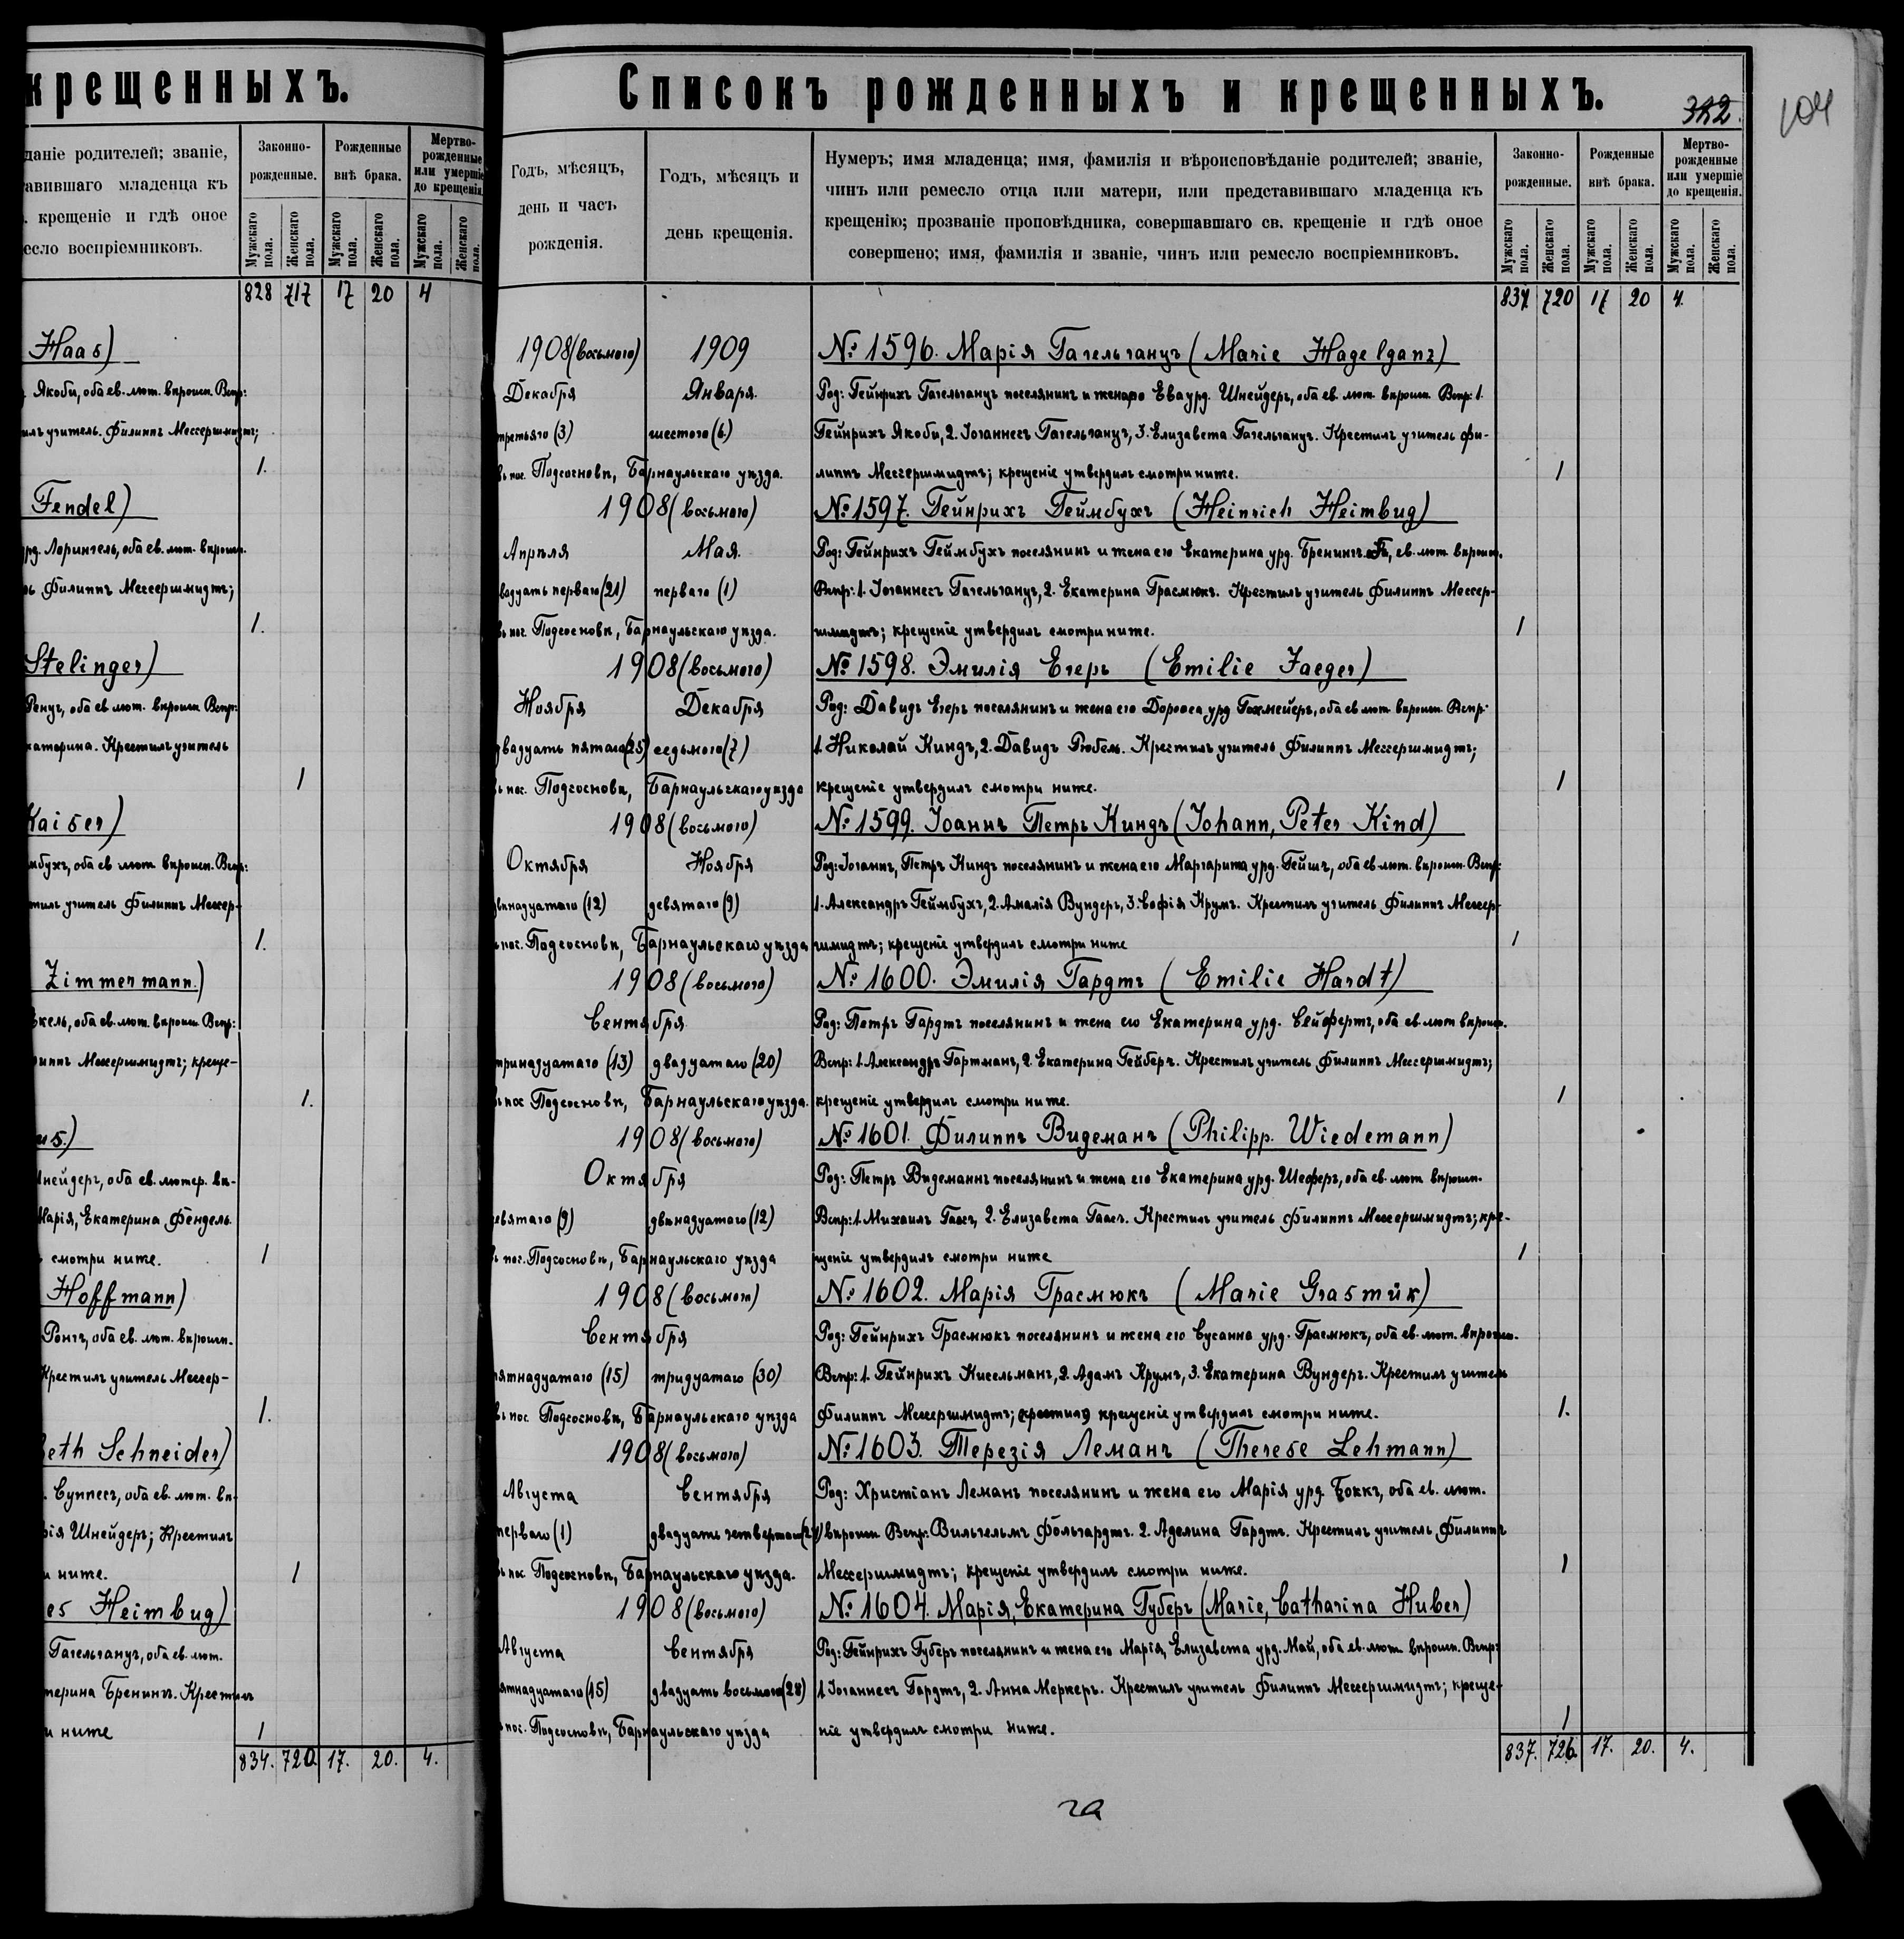 крещенныхъ.
даніе родителей; званіе,
авившаго младенца къ
крещеніе и гдѣ оное
есло воспріемниковъ.
Законно-
рожденные.
Рожденные
внѣ брака.
Мертво-
рожденные
или умершіе
до крещенія.
Мужскаго пола.
Женскаго пола.
Мужскаго пола.
Женскаго пола.
Мужскаго пола.
Женскаго пола.
828 717 17 20 4
Haas)
Якоби, оба ев. лют. вѣроисп. Вспр:
илъ учитель Филиппъ Мессершмидтъ;
1.
Fendel)
урд. Лорингель, оба ев. лют. вѣроисп.
ь Филиппъ Мессершмидтъ;
1.
Stelinger)
Ренцъ, оба ев. лют. вѣроисп. Вспр:
катерина. Крестилъ учитель
1
Kaiser)
мбухъ, оба ев. лют. вѣроисп. Вспр:
тилъ учитель Филиппъ Мессер-
1.
Zimmermann.)
кель, оба ев. лют. вѣроисп. Вспр:
липпъ Мессершмидтъ; креще-
1.
us.)
нейдеръ, оба ев. лютер. вѣ-
Марія, Екатерина Фендель.
смотри ниже.
1
Hoffmann)
Ронгъ, оба ев. лют. вѣроисп.
Крестилъ учитель Мессер-
1.
beth Schneider)
Суппесъ, оба ев. лют. вѣ-
рія Шнейдеръ; Крестилъ
и ниже.
1
es Heimbug)
Гагельганцъ, оба ев. лют.
терина Бренингъ. Крестилъ
и ниже
1
834. 720. 17. 20. 4.
Списокъ рожденныхъ и крещенныхъ.
322.
104
Годъ, мѣсяцъ,
день и часъ
рожденія.
Годъ, мѣсяцъ и
день крещенія.
Нумеръ; имя младенца; имя, фамилія и вѣроисповѣданіе родителей; званіе,
чинъ или ремесло отца или матери, или представившаго младенца къ
крещенію; прозваніе проповѣдника, совершавшаго св. крещеніе и гдѣ оное
совершено; имя, фамилія и званіе, чинъ или ремесло воспріемниковъ.
Законно-
рожденные.
Рожденные
внѣ брака.
Мертво-
рожденные
или умершіе
до крещенія.
Мужскаго пола.
Женскаго пола.
Мужскаго пола.
Женскаго пола.
Мужскаго пола.
Женскаго пола.
834 720 17 20 4.
1908 (восьмого) 1909 № 1596. Марія Гагельганцъ (Marie Hagelganz)
Декабря Января. Род: Гейнрихъ Гагельганцъ поселянинъ и жена его Ева урд. Шнейдеръ, оба ев. лют. вѣроисп. Вспр: 1.
третьяго (3) шестого (6.) Гейнрихъ Якоби, 2. Іоганнесъ Гагельганцъ, 3. Елизавета Гагельганцъ. Крестилъ учитель Фи-
въ пос. Подсосновѣ, Барнаульскаго уѣзда. липпъ Мессершмидтъ; крещеніе утвердилъ смотри ниже. 1
1908 (восьмого) № 1597. Гейнрихъ Геймбухъ (Heinrich Heimbug)
Апрѣля Мая. Род: Гейнрихъ Геймбухъ поселянинъ и жена его Екатерина урд. Бренингъ, ев. лют. вѣроисп.
вадцать перваго (21) перваго (1) Вспр: 1. Іоганнесъ Гагельганцъ, 2. Екатерина Грасмюкъ. Крестилъ учитель Филиппъ Мессер-
въ пос. Подсосновѣ, Барнаульскаго уѣзда. шмидтъ; крещеніе утвердилъ смотри ниже. 1
1908 (восьмого) № 1598. Эмилія Егеръ (Emilie Jaeger)
Ноября Декабря Род: Давидъ Егеръ поселянинъ и жена его Доротея урд. Гохмейеръ, оба ев. лют. вѣроисп. Вспр:
двадцать пятаго (25) седьмого (7) 1. Николай Киндъ, 2. Давидъ Рюбель. Крестилъ учитель Филиппъ Мессершмидтъ;
ъ пос. Подсосновѣ, Барнаульскаго уѣзда крещеніе утвердилъ смотри ниже. 1
1908 (восьмого) № 1599. Іоаннъ Петръ Киндъ (Johann, Peter Kind)
Октября Ноября Род: Іоганнъ, Петръ Киндъ поселянинъ и жена его Маргарита урд. Гейшъ, оба ев. лют. вѣроисп. Вспр:
двѣнадцатаго (12) девятаго (9) 1. Александръ Геймбухъ, 2. Амалія Вундеръ, 3. Софія Крумъ. Крестилъ учитель Филиппъ Мессер-
пос. Подсосновѣ, Барнаульскаго уѣзда шмидтъ; крещеніе утвердилъ смотри ниже 1
1908 (восьмого) № 1600. Эмилія Гардтъ (Emilie Hardt)
Сентября Род: Петръ Гардтъ поселянинъ и жена его Екатерина урд. Сейфертъ, оба ев. лют. вѣроисп.
тринадцатаго (13) двадцатаго (20) Вспр: 1. Александръ Гартманъ, 2. Екатерина Гейберъ. Крестилъ учитель Филиппъ Мессершмидтъ;
ъ пос Подсосновѣ, Барнаульскаго уѣзда. крещеніе утвердилъ смотри ниже. 1
1908 (восьмого) № 1601. Филиппъ Видеманъ (Philipp. Wiedemann)
Октября Род: Петръ Видеманнъ поселянинъ и жена его Екатерина урд. Шеферъ, оба ев. лют. вѣроисп.
евятаго (9) двѣнадцатаго (12) Вспр: 1. Михаилъ Гаасъ, 2. Елизавета Гаасъ. Крестилъ учитель Филиппъ Мессершмидтъ; кре-
ъ пос. Подсосновѣ, Барнаульскаго уѣзда щеніе утвердилъ смотри ниже 1
1908 (восьмого) № 1602. Марія Грасмюкъ (Marie Grasmük)
Сентября Род: Гейнрихъ Грасмюкъ поселянинъ и жена его Сусанна урд. Грасмюкъ, оба ев. лют. вѣроисп.
пятнадцатаго (15) тридцатаго (30) Вспр: 1. Гейнрихъ Кисельманъ, 2. Адамъ Крумъ, 3. Екатерина Вундеръ. Крестилъ учитель
въ пос. Подсосновѣ, Барнаульскаго уѣзда Филиппъ Мессершмидтъ; (крестилъ) крещеніе утвердилъ смотри ниже. 1.
1908 (восьмого) № 1603. Терезія Леманъ (Therese Lehmann)
Августа Сентября Род: Христіанъ Леманъ поселянинъ и жена его Марія урд. Боккъ, оба ев. лют.
перваго (1) двадцать четвертаго (24) вѣроисп. Вспр: Вильгельмъ Фольгардтъ. 2. Аделина Гардтъ. Крестилъ учитель Филиппъ
ъ пос Подсосновѣ, Барнаульскаго уѣзда. Мессершмидтъ; крещеніе утвердилъ смотри ниже. 1
1908 (восьмого) № 1604. Марія, Екатерина Губеръ (Marie, Catharina Huber)
Августа Сентября Род: Гейнрихъ Губеръ поселянинъ и жена его Марія, Елизавета урд. Май, оба ев. лют. вѣроисп. Вспр:
ятнадцатаго (15) двадцать восьмого (28) 1. Іоганнесъ Гардтъ, 2. Анна Меркеръ. Крестилъ учитель Филиппъ Мессершмидтъ; креще-
пос. Подсосновѣ, Барнаульскаго уѣзда ніе утвердилъ смотри ниже. 1
837. 726. 17. 20. 4.